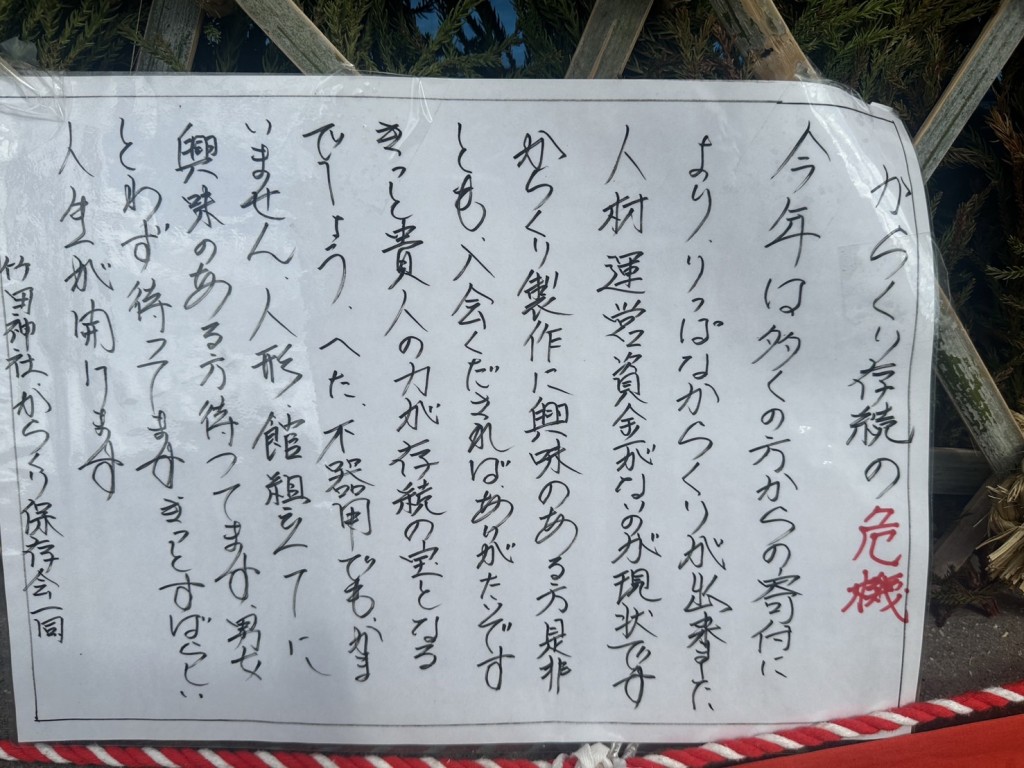 からくり存続の危機
今年は多くの方からの寄付に
より、りっぱなからくりが出来ました
人材 運営資金がないのが現状です
からくり製作に興味のある方是非
とも、入会くだされば、ありがたいです
きっと貴人の力が存続の宝となる
でしょう、へた、不器用でも、かま
いません、人形 館組立てに
興味のある方待ってます、男女
とわず待ってます きっとすばらしい
人生が開けます
竹田神社、からくり保存会一同